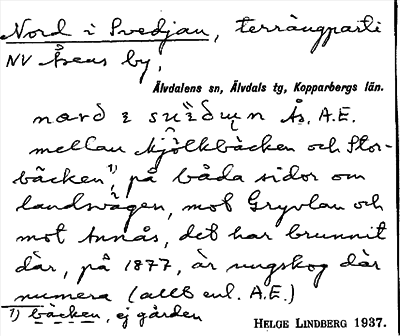 Nord i Svedjan, terrängparti
NV Åsens by,
Älvdalens sn, Älvdals tg, Kopparbergs län.
Ås, A.E.
mellan Mjölkbäcken och Stor-
bäcken¹⁾, på båda sidor om
landsvägen, mot Gryvlan och
mot Annås, det har brunnit
där, på 1877, är ungskog där
numera (allt enl. A.E.)
1) bäcken, ej gården
HELGE LINDBERG 1937.